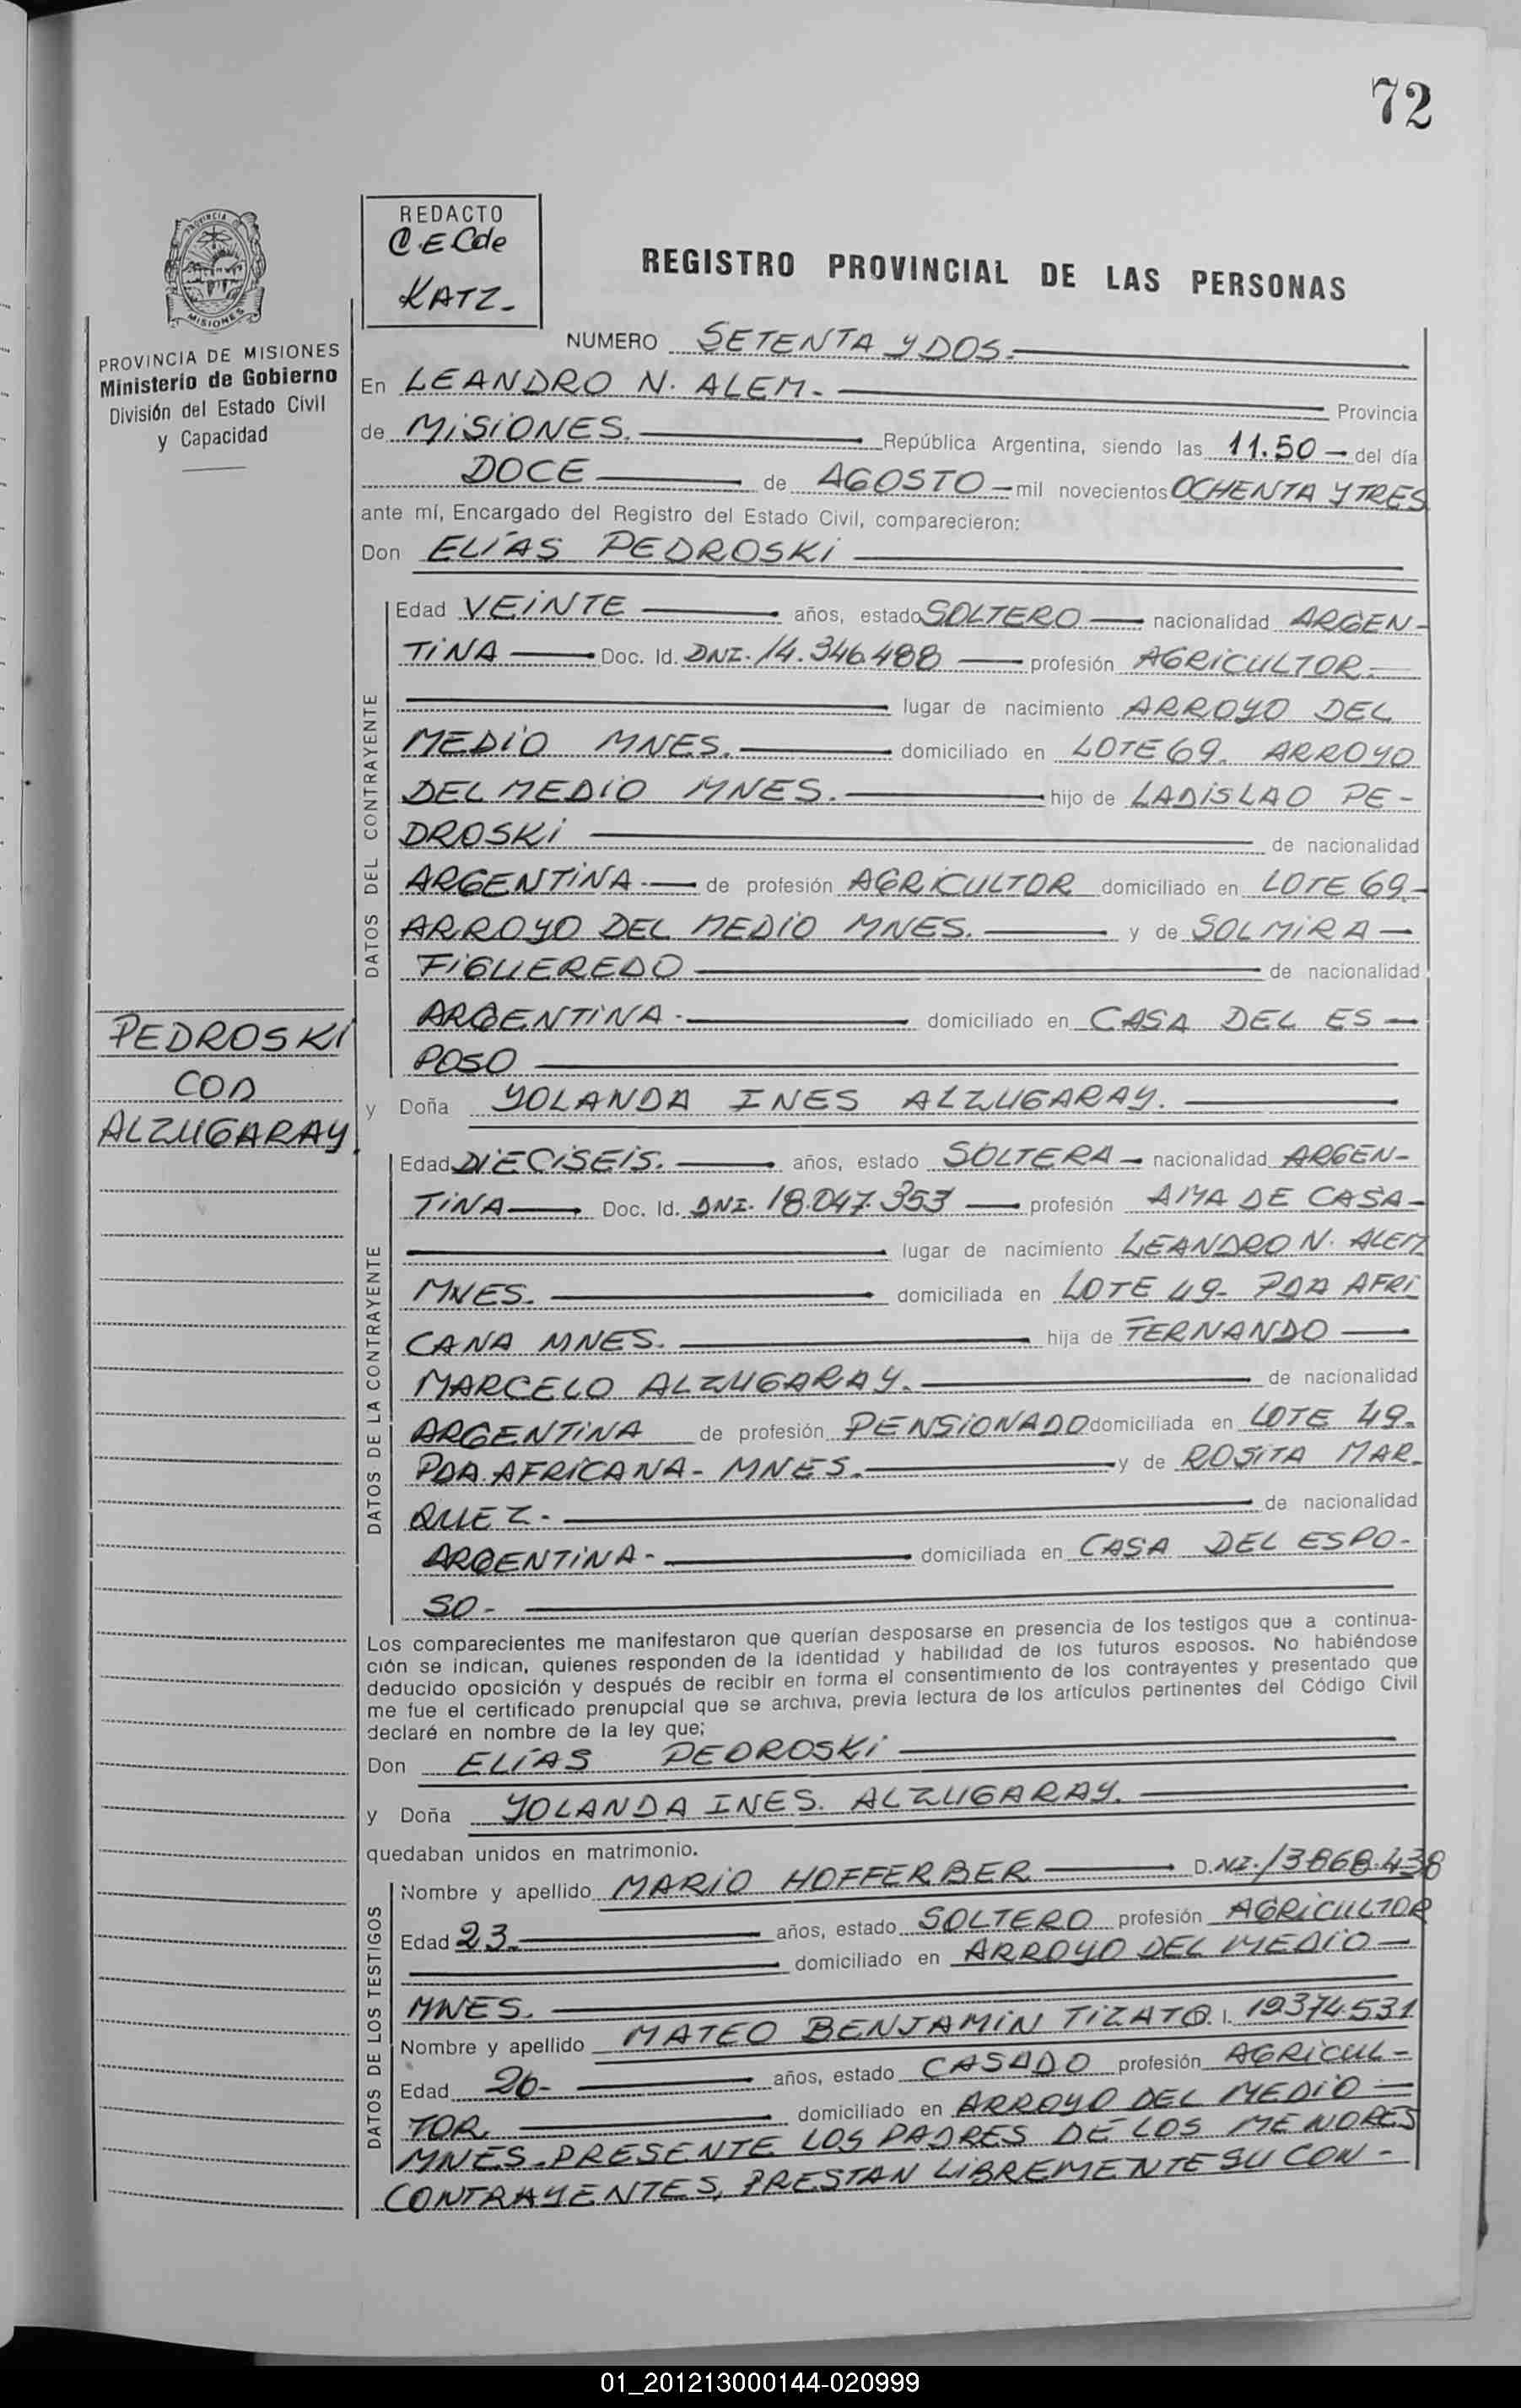 72
REDACTO
C.E.C de
KATZ.-
REGISTRO PROVINCIAL DE LAS PERSONAS
PROVINCIA
MISIONES
PROVINCIA DE MISIONES
Ministerio de Gobierno
División del Estado Civil
y Capacidad
NUMERO SETENTA Y DOS.-
En LEANDRO N. ALEM.- Provincia
de MISIONES. República Argentina, siendo las 11.50 - del día
DOCE de AGOSTO - mil novecientos OCHENTA Y TRES
ante mí, Encargado del Registro del Estado Civil, comparecieron:
Don ELÍAS PEDROSKI
DATOS DEL CONTRAYENTE
Edad VEINTE años, estado SOLTERO nacionalidad ARGEN-
TINA Doc. Id. DNI. 14.346.488 profesión AGRICULTOR.-
lugar de nacimiento ARROYO DEL
MEDIO MNES. domiciliado en LOTE 69. ARROYO
DEL MEDIO MNES. hijo de LADISLAO PE-
DROSKI de nacionalidad
ARGENTINA.- de profesión AGRICULTOR domiciliado en LOTE 69-
ARROYO DEL MEDIO MNES. y de SOLMIRA -
FIGUEREDO de nacionalidad
ARGENTINA.- domiciliado en CASA DEL ES-
POSO
PEDROSKI
CON
ALZUGARAY.
y Doña YOLANDA INES ALZUGARAY.
DATOS DE LA CONTRAYENTE
Edad DIECISEIS. años, estado SOLTERA - nacionalidad ARGEN-
TINA Doc. Id. DNI. 18.047.353 profesión AMA DE CASA-
lugar de nacimiento LEANDRO N. ALEM
MNES. domiciliada en LOTE 49- PDA AFRI
CANA MNES. hija de FERNANDO
MARCELO ALZUGARAY. de nacionalidad
ARGENTINA de profesión PENSIONADO domiciliada en LOTE 49.
PDA. AFRICANA- MNES. y de ROSITA MAR-
QUEZ.- de nacionalidad
ARGENTINA- domiciliada en CASA DEL ESPO-
SO-
Los comparecientes me manifestaron que querían desposarse en presencia de los testigos que a continua-
ción se indican, quienes responden de la identidad y habilidad de los futuros esposos. No habiéndose
deducido oposición y después de recibir en forma el consentimiento de los contrayentes y presentado que
me fue el certificado prenupcial que se archiva, previa lectura de los artículos pertinentes del Código Civil
declaré en nombre de la ley que;
Don ELÍAS PEDROSKI
y Doña YOLANDA INES. ALZUGARAY.
quedaban unidos en matrimonio.
DATOS DE LOS TESTIGOS
Nombre y apellido MARIO HOFFERBER D.NI. 13868.438
Edad 23.- años, estado SOLTERO profesión AGRICULTOR
domiciliado en ARROYO DEL MEDIO -
MNES.
Nombre y apellido MATEO BENJAMIN TIZATO 12374.531
Edad 26- años, estado CASADO profesión AGRICUL-
TOR. domiciliado en ARROYO DEL MEDIO -
MNES. PRESENTE LOS PADRES DE LOS MENORES
CONTRAYENTES, PRESTAN LIBREMENTE SU CON-
01_201213000144-020999